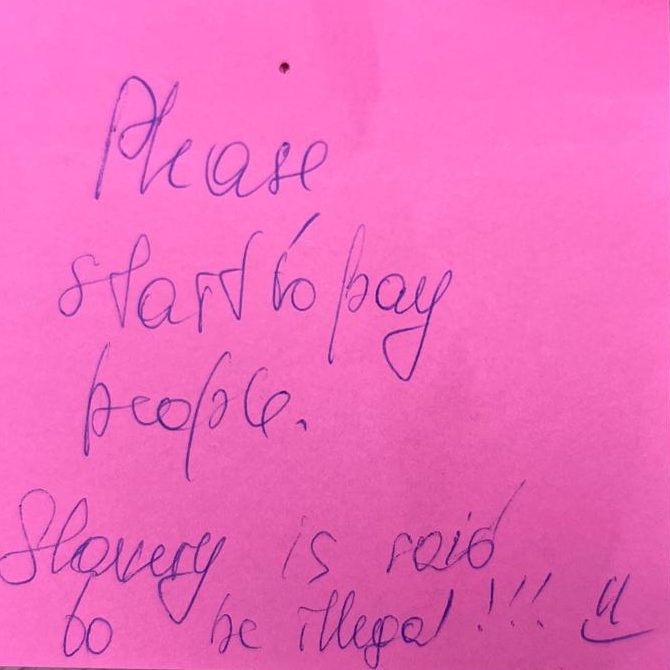 Please
start to pay
people.
Slavery is said
to be illegal!!!